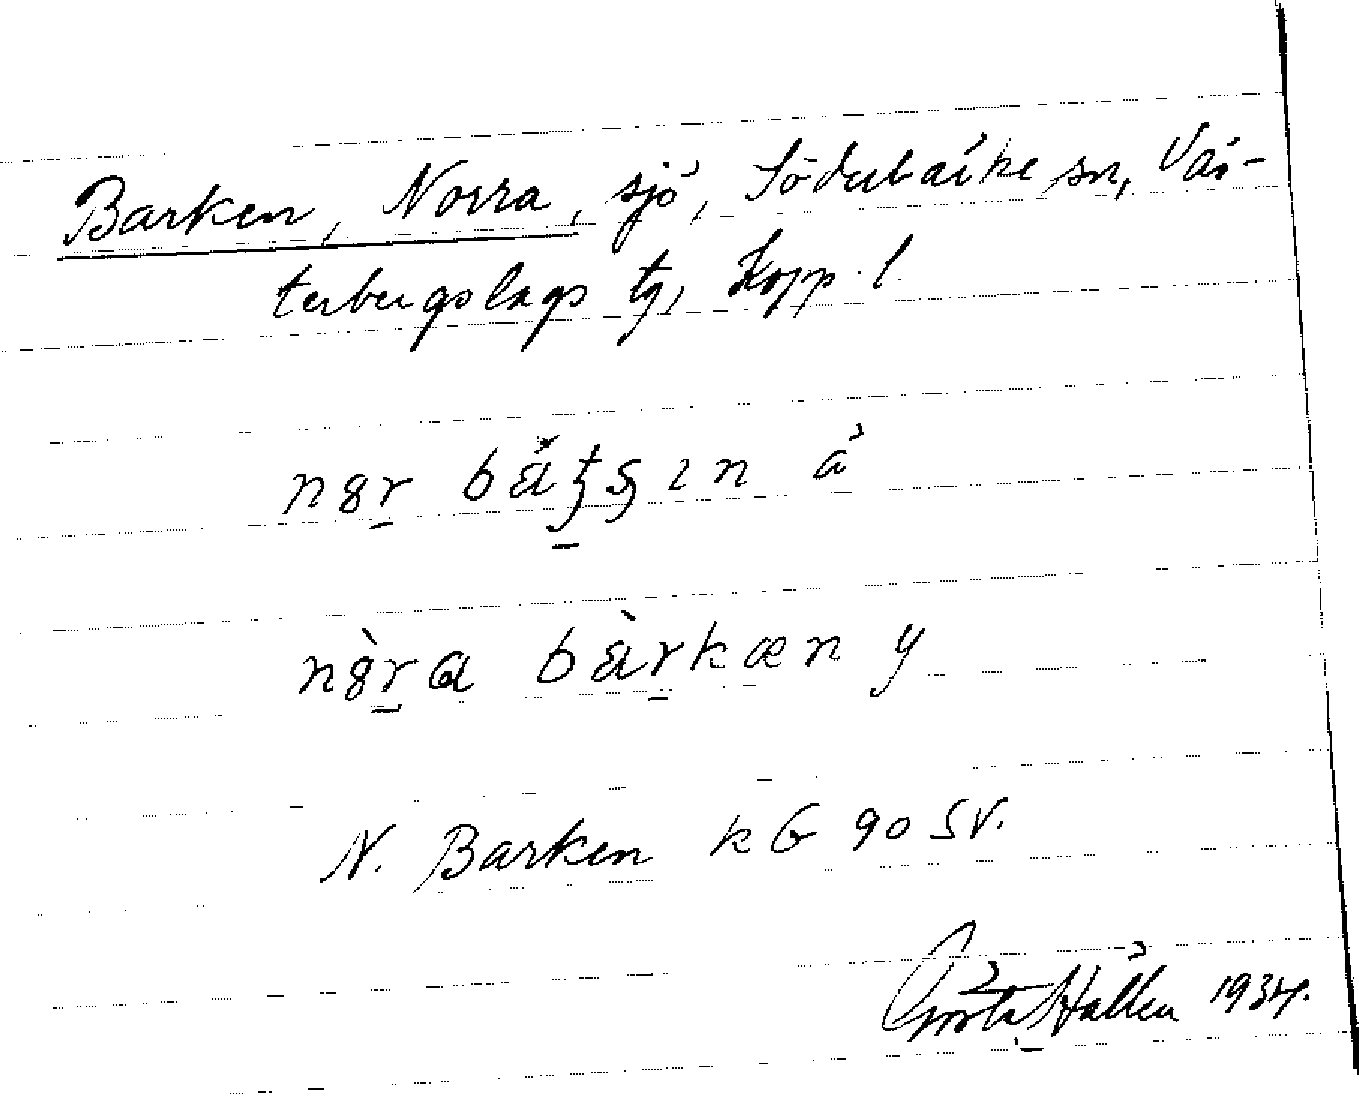 Barken, Norra, sjö, Söderbärke sn, Väs-
terbergslags tg, Kopp. l.
å
nȯ̀ra bàrkæn y
N. Barken kG 90 SV.
Gösta Hallén 1934.